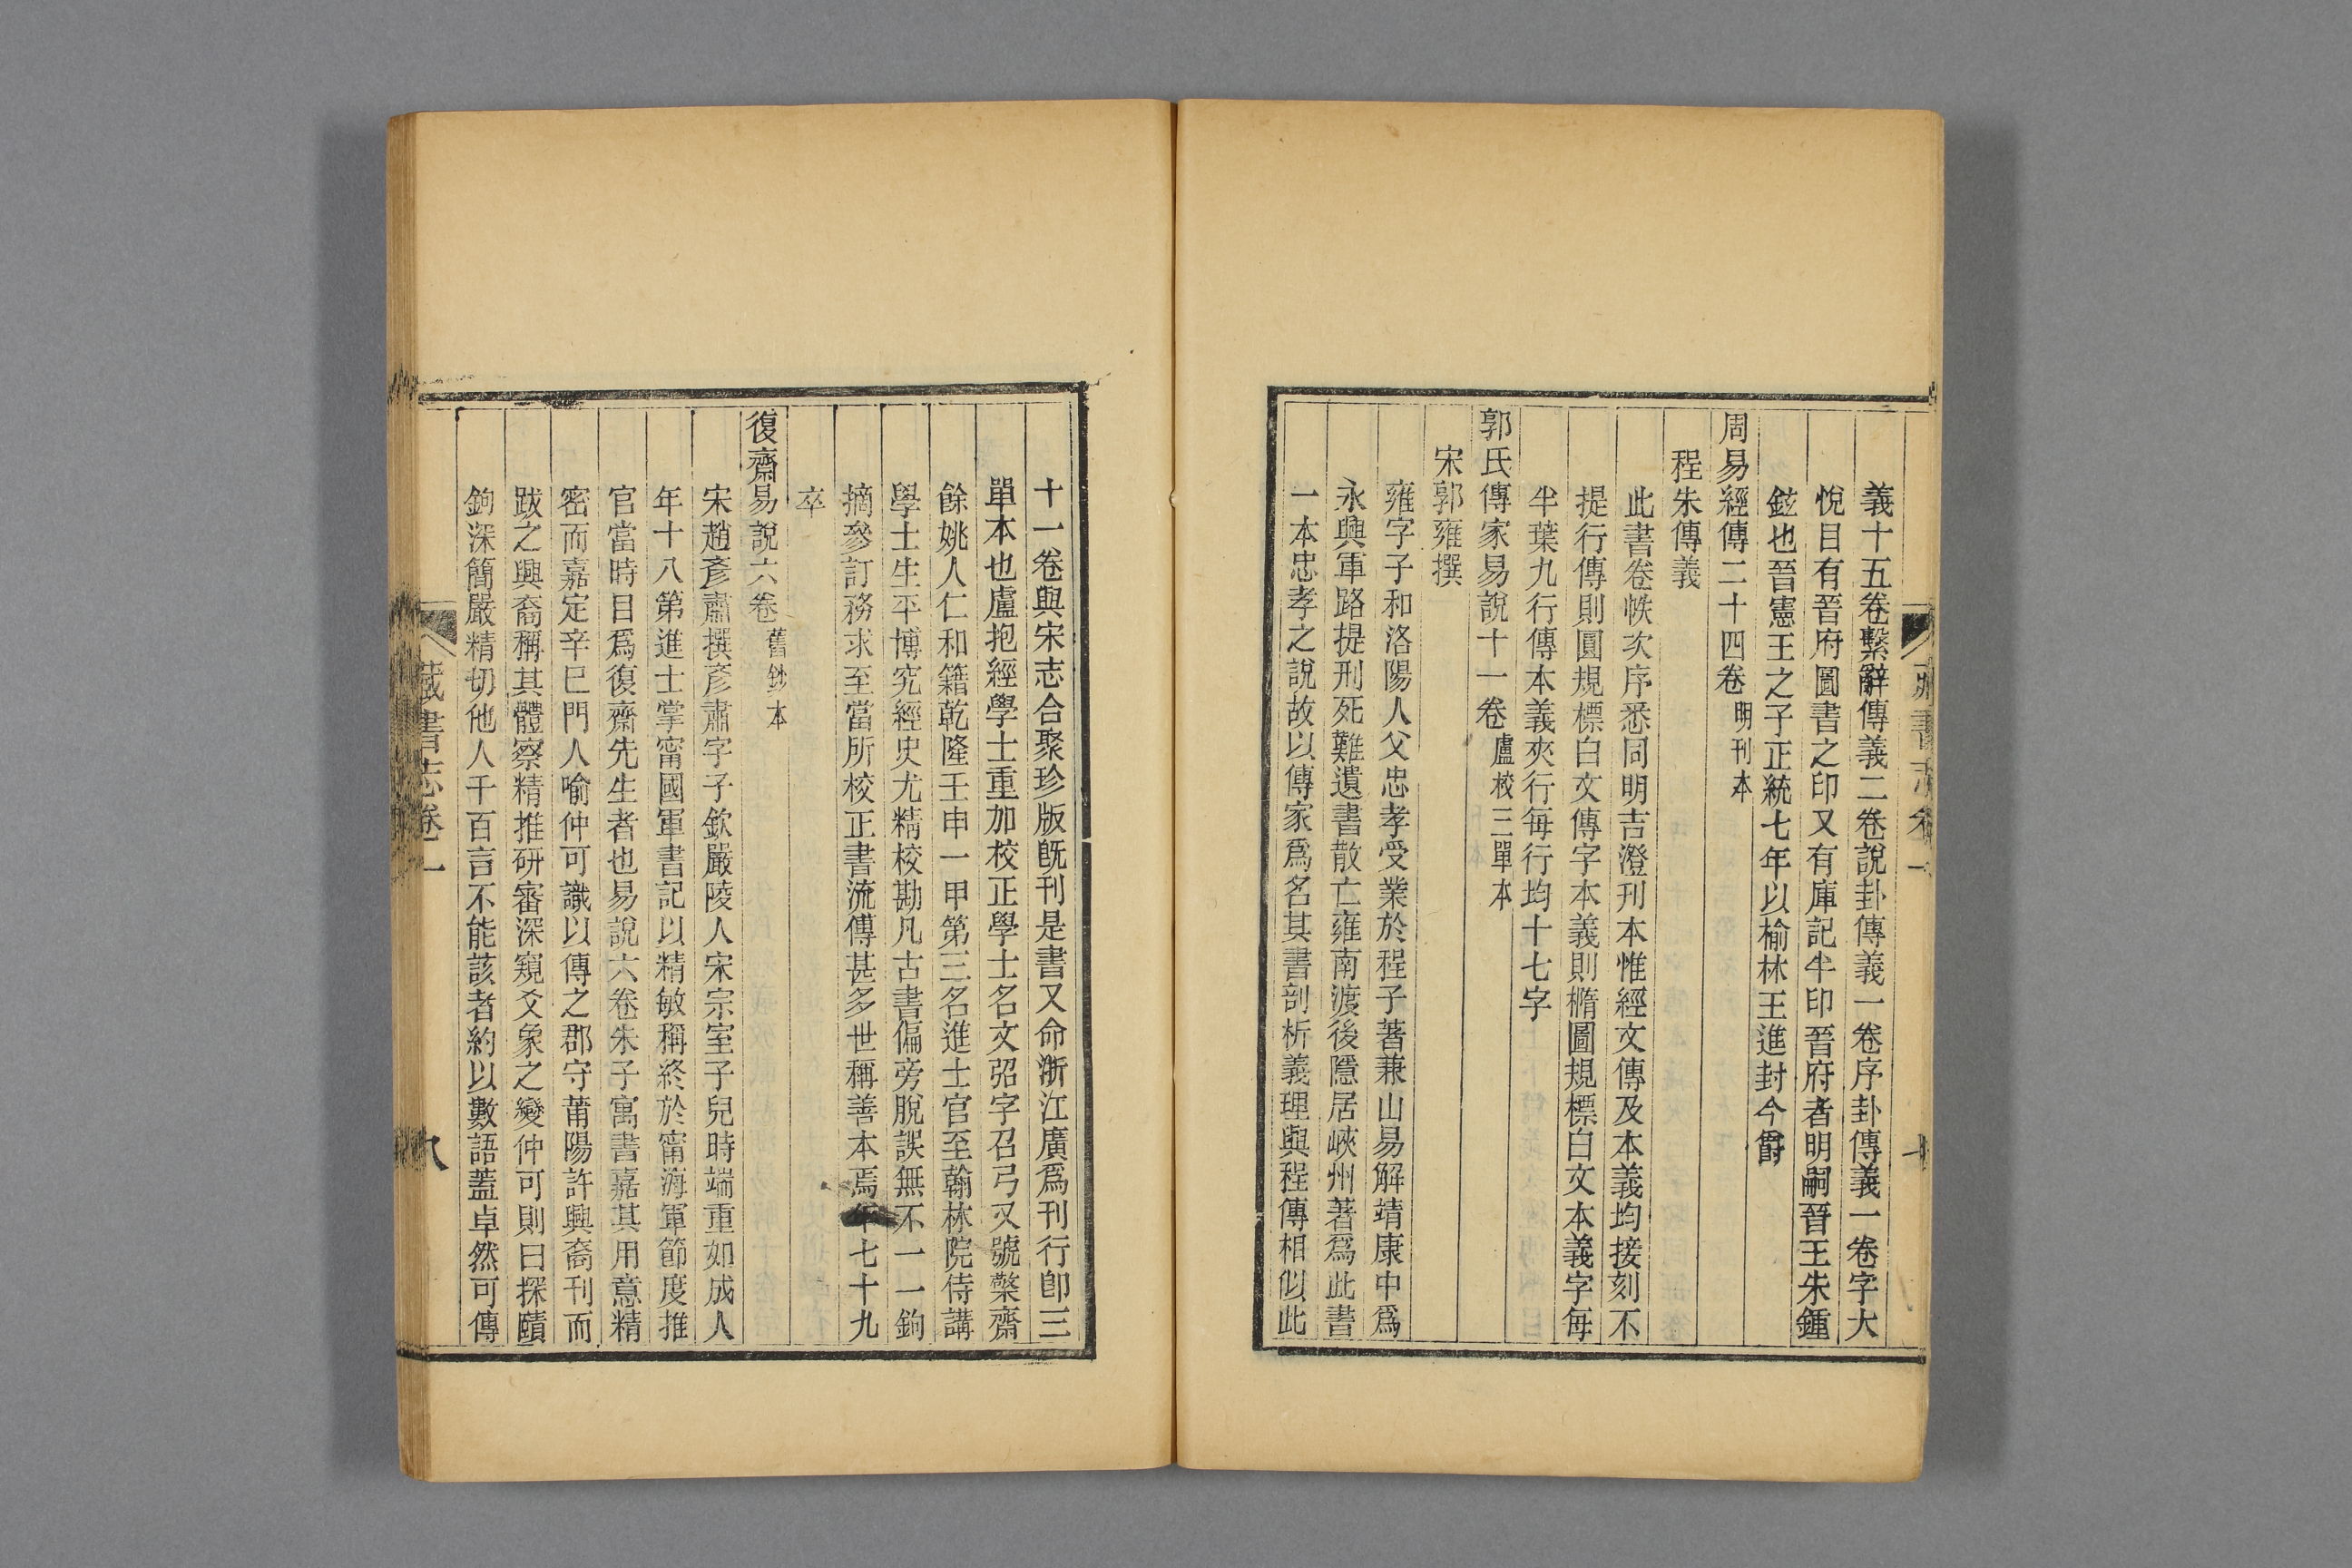 義十五卷繫辭傳義二卷說卦傳義一卷序卦傳義一卷字大
悅目有晉府圖書之印又有庫記半印晉府者明嗣晉王朱鍾
鉉也晉憲王之子正統七年以榆林王進封今爵
周易經傳二十四卷 明刊本
程朱傳義
此書卷帙次序悉同明吉澄刊本惟經文傳及本義均接刻不
提行傳則圓規標白文傳字本義則橢圖規標白文本義字每
半葉九行傳本義夾行每行均十七字
郭氏傳家易說十一卷 盧校三單本
宋郭雍撰
雍字子和洛陽人父忠孝受業於程子著兼山易解靖康中爲
永興軍路提刑死難遺書散亡雍南渡後隱居峽州著爲此書
一本忠孝之說故以傳家爲名其書剖析義理與程傳相似此
十一卷與宋志合聚珍版旣刊是書又命浙江廣爲刊行卽三
單本也盧抱經學士重加校正學士名文弨字召弓又號檠齋
餘姚人仁和籍乾隆壬申一甲第三名進士官至翰林院侍講
學士生平博究經史尤精校勘凡古書偏旁脫誤無不一一鉤
摘參訂務求至當所校正書流傳甚多世稱善本焉年七十九
卒
復齋易說六卷 舊鈔本
宋趙彥肅撰彥肅字子欽嚴陵人宋宗室子兒時端重如成人
年十八第進士掌甯國軍書記以精敏稱終於甯海軍節度推
官當時目爲復齋先生者也易說六卷朱子寓書嘉其用意精
密而嘉定辛巳門人喻仲可識以傳之郡守莆陽許興裔刊而
跋之興裔稱其體察精推研審深窺爻象之變仲可則曰探賾
鉤深簡嚴精切他人千百言不能該者約以數語蓋卓然可傳
藏書志卷一
八